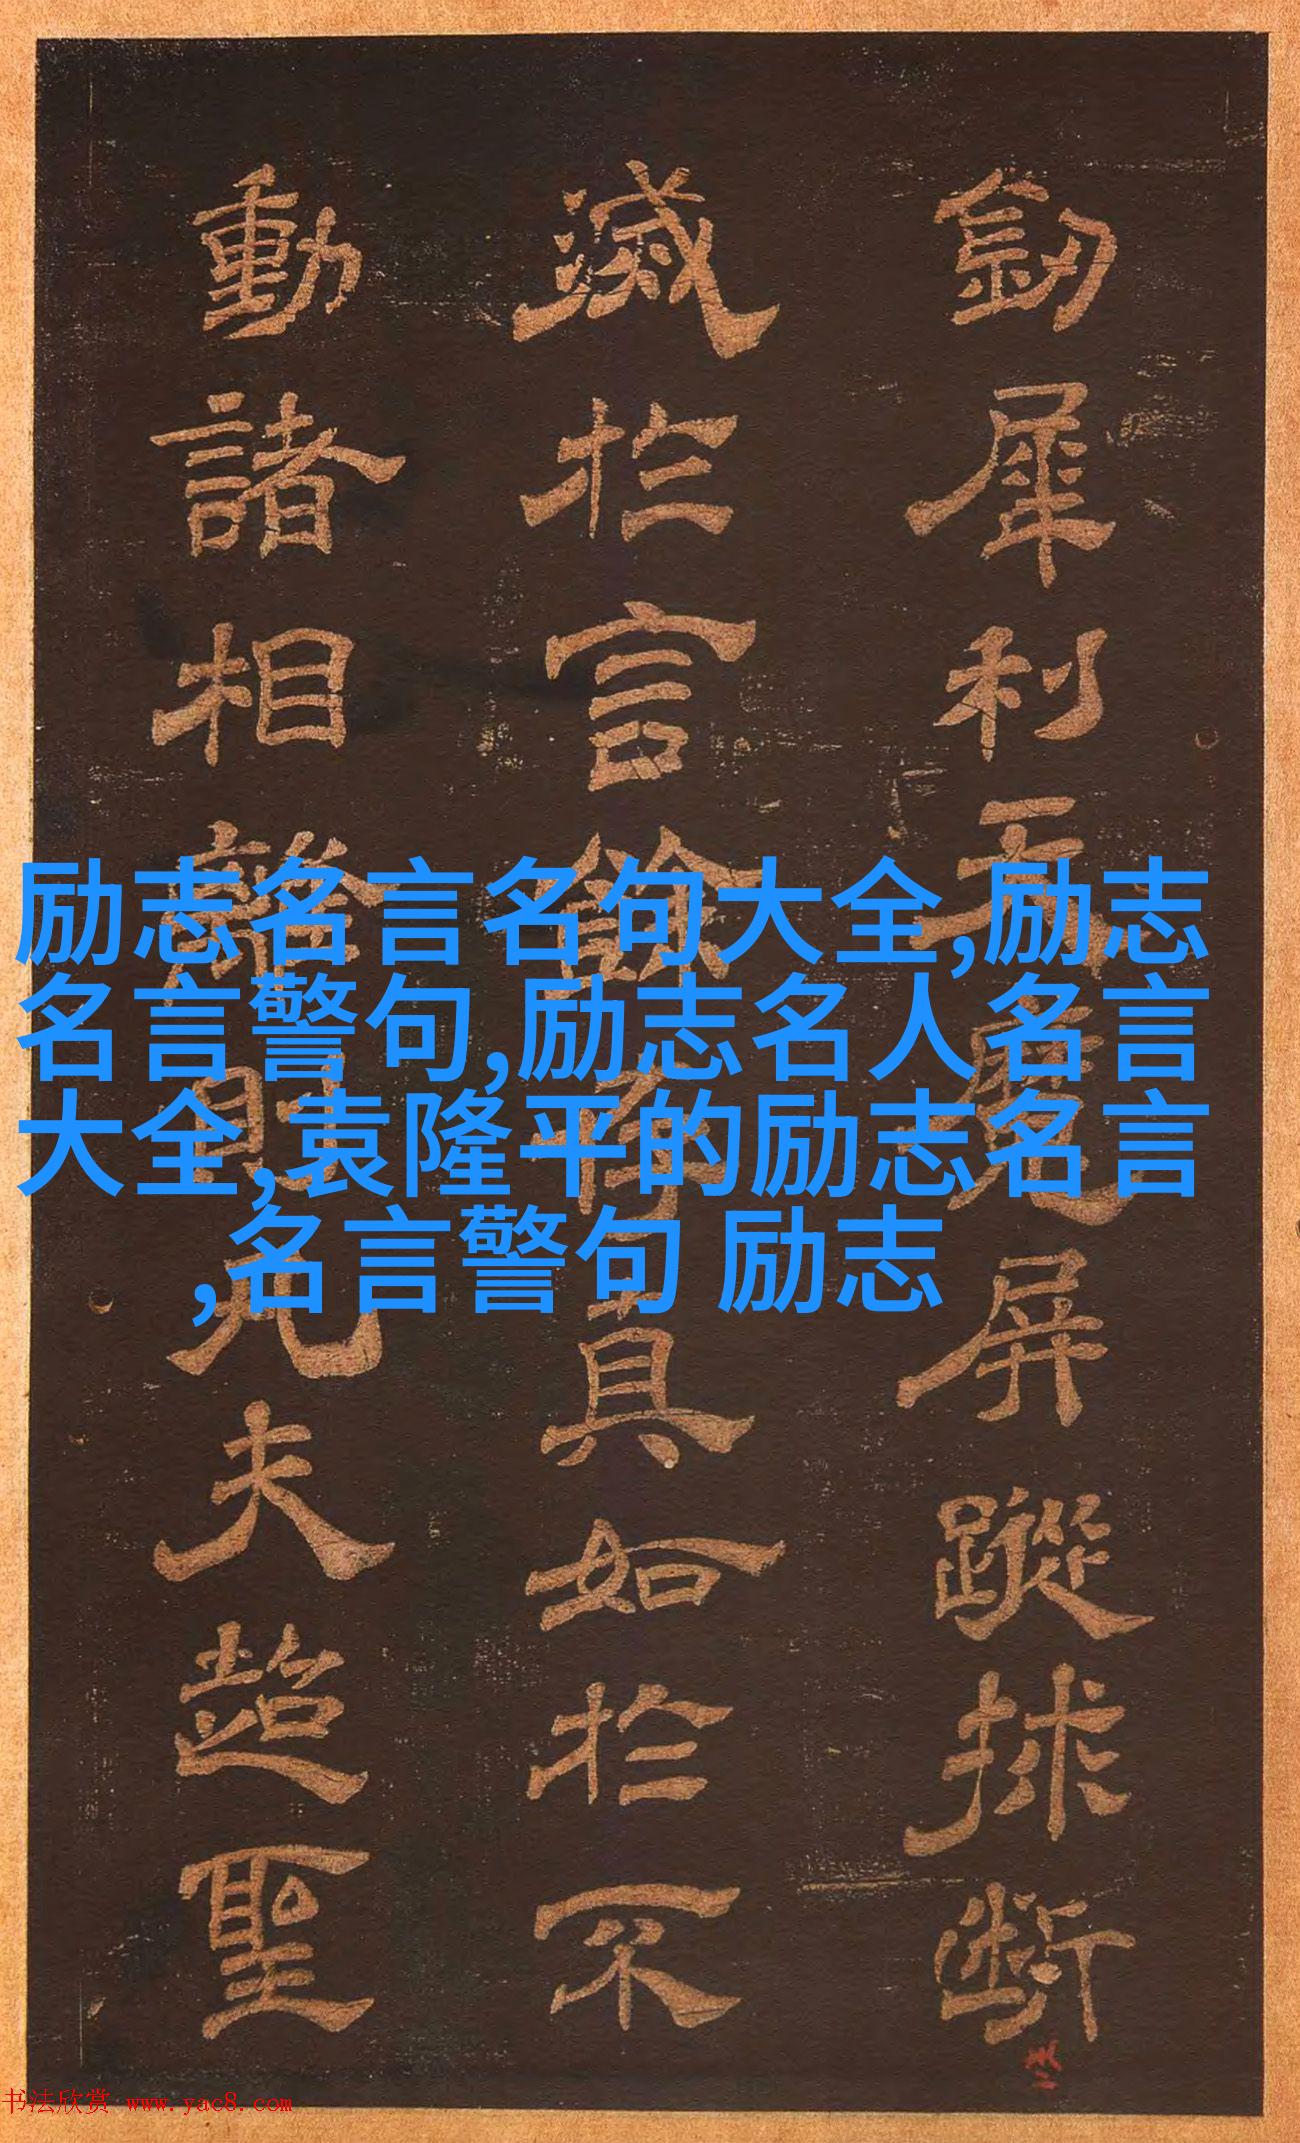 劒犀利天魔屏蹤捄斷
滅於言餘得真如於不
動諸相離則凡夫超聖
励志名言名句大全,励志
名言警句,励志名人名言
大全,袁隆平的励志名言
,名言警句 励志
书法欣赏 www.yac8.com